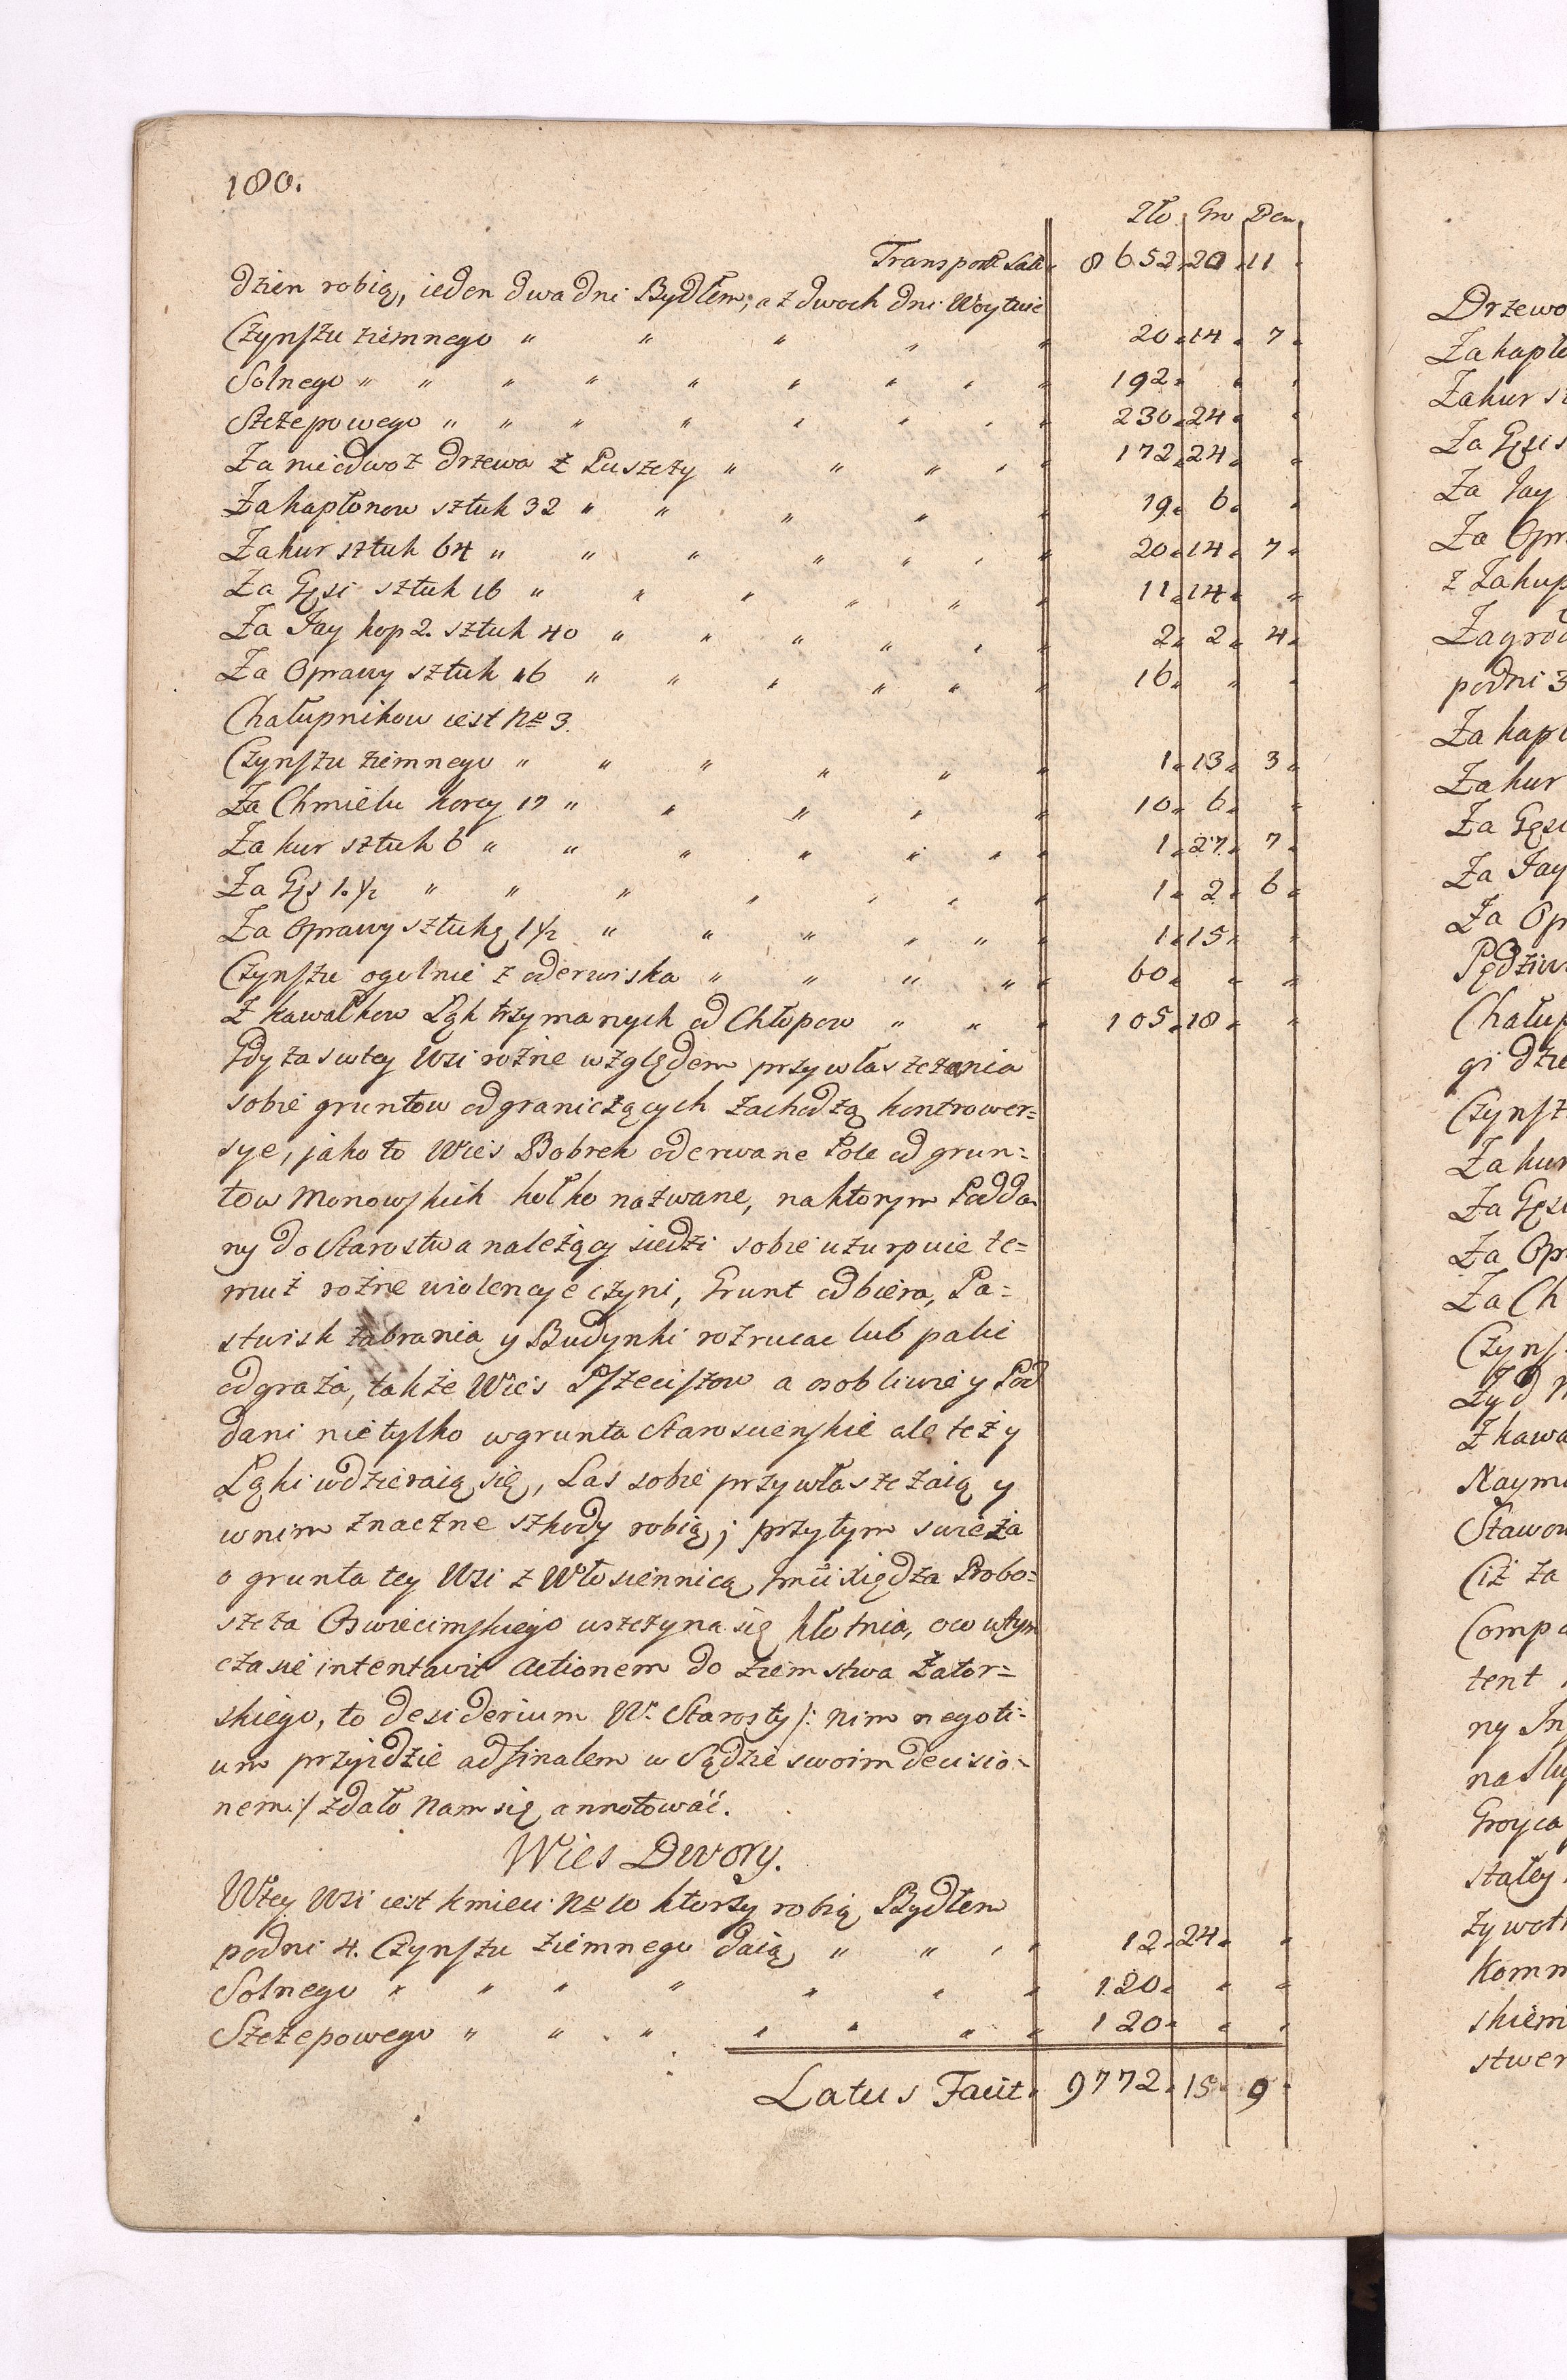 180.
Zło Gro Den
Transport Lat. 8652 20 11
dzien robią, ieden dwa dni Bydłem, a z dwoch dni Woytwie
Czynszu ziemnego " " " " " 20 14 7
Solnego " " " " " " " " " 192 " "
Szczepowego " " " " " " " " 230 24 "
Za nieodwoz drzewa z Puszczy " " " " " 172 24 "
Za kapłonow sztuk 32 " " " " " 19 6 "
Za kur sztuk 64 " " " " " " " 20 14 7
Za Gęsi sztuk 16 " " " " " " 11 14 "
Za Jay kop 2. sztuk 40 " " " " " " 2 2 4
Za Oprawy sztuk 16 " " " " " " 16 " "
Chałupnikow iest No 3.
Czynszu ziemnego " " " " " " 1 13 3
Za Chmielu korcy 17 " " " " " 10 6 "
Za kur sztuk 6 " " " " " " " 1 27 7
Za Gęs 1. ½ " " " " " " " 1 2 6
Za Oprawy sztukę 1½ " " " " " " 1 15 "
Czynszu ogulnie z oderwiska " " " " " 60 " "
Z kawałkow Łąk trzymanych od Chłopow " " " 105 18 "
Gdy zas w tey Wsi rożne względem przywłaszczenia
sobie gruntow odgraniczących zachodzą kontrower=
sye, jako to Wies Bobrek oderwane Pole od grun=
tow Monowskich kołko nazwane, na ktorym Podda=
ny do Starostwa należący siedzi sobie uzurpuie te=
muż rożne violencye czyni, Grunt odbiera, Pa=
stwisk zabrania y Budynki rozrucac lub palic
odgraża, także Wies Pszeciszow a osobliwie y Pod
dani nie tylko w grunta Staroscienskie ale też y
Łąki wdzieraią się, Las sobie przywłaszczaią y
w nim znaczne szkody robią; przytym swieża
o grunta tey Wsi z Włosiennicą Jmci Xiędza Probo=
szcza Oswiecimskiego wszczyna się kłotnia, oco w tym
czasie intentavit Actionem do Ziemstwa Zator=
skiego, to desiderium W. Starosty /: nim negoti=
um przyidzie ad finalem w Sądzie swoim decisio=
nem :/ zdało Nam się annotować.
Wies Dwory.
W tey Wsi iest kmieci No 10 ktorzy robią Bydłem
po dni 4. Czynszu ziemnego daią " " " " 12 24 "
Solnego " " " " " " " 120 " "
Szczepowego " " " " " " " 120 " "
Latus Facit 9772 15 9
Drzewo
Za kapło
Za kur s
Za Gęsi s
Za Jay
Za Opr
z Zakup
Zagrod
po dni 3
Za kapł
Za kur
Za Gęsi
Za Jay
Za Op
Pędziw
Chałup
gi dzie
Czynsz
Za kur
Za Gęsi
Za Opr
Za Ch
Czyns
Żyd
Z kawa
Naym
Stawow
Ciż za
Comp
tent
ny In
na Słu
Groyca
stałey
żywot
Komm
skiem
stwer